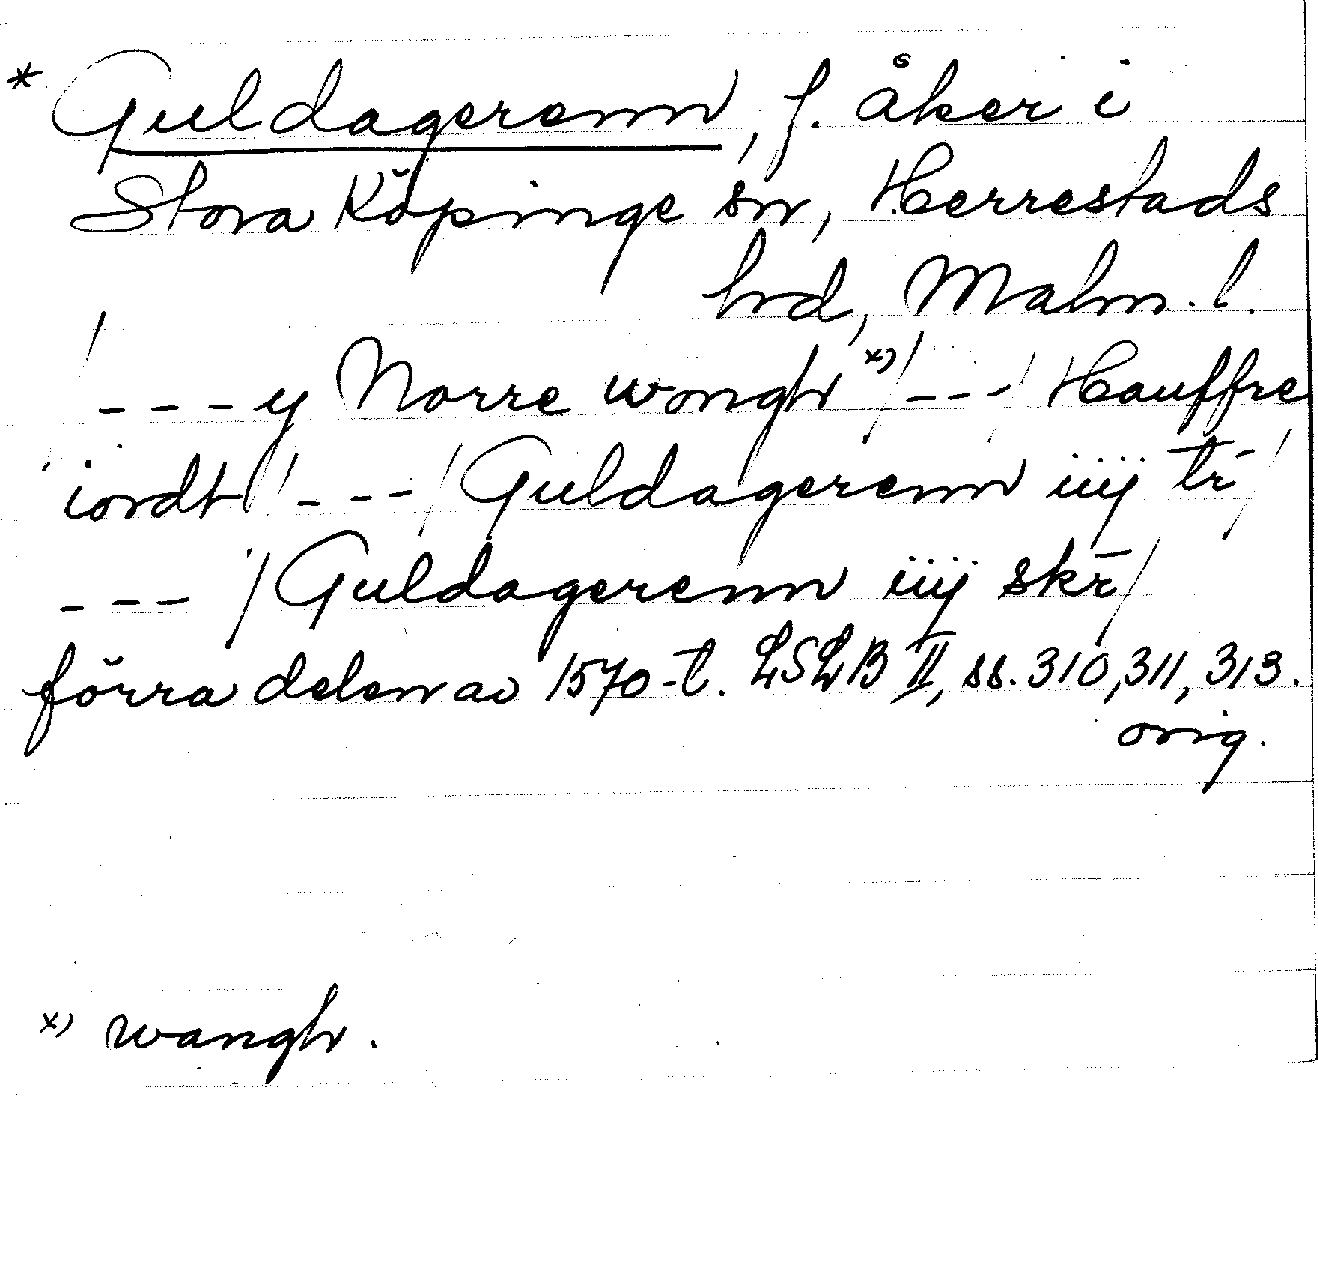 * Guldagerenn, f. åker i
Stora Köpinge sn, Herrestads
hrd, Malm. l.
/ - - - y Norre wongh x) / - - - / Hauffre
iordt / - - - / Guldagerenn iiij tr̄ /
- - - / Guldagerenn iiij skr̄ /
förra delen av 1570-t. LSLB II, ss. 310, 311, 313.
orig.
x) wangh.